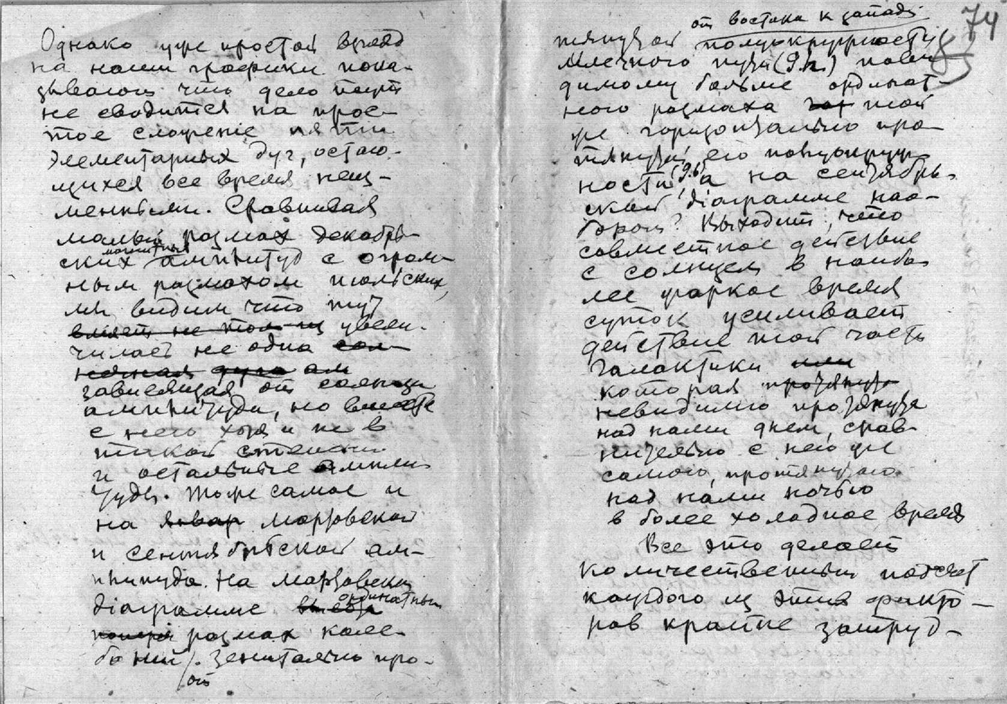 Однако уже простой взгляд
на наши графики пока-
зывают что дело тут
не сводится на прос-
тое сложеніе пяти
элементарных дуг, остаю-
щихся все время неиз-
менными. Сравнивая
малый размах декабрь-
магнитных
ских амплитуд с огром-
ным размахом июльских,
мы видим что тут
влияет не только увели-
чилась не одна сол-
нечная дуга ам
зависящая от солнца
амплитуда, но вместе
с него хотя и не в
такой степени
и остальные ампли-
туды. Тоже самое и
на январ мартовской
и сентябрьской ам-
плитуде. На мартовской
діаграмме
ординатный
размах коле-
баний от зенитально про-
от востока к западу
74
тянутой полуокружности
Млечного пути (9h) пови-
димому больше ординат-
ного размаха той
же горизонтально про-
тянутой его полуокруж-
ности, а на сентябрь-
ской діаграмме нао-
борот? Выходит, что
совместное действие
с солнцем в наибо
лее жаркое время
суток усиливает
действие той части
Галактики или
которая протянута
невидимо протянута
над нами днем, срав-
нительно с ней же
самою, протянутою
над нами ночью
в более холодное время
Все это делает
количественный подсчет
каждого из этих факто-
ров крайне затруд-